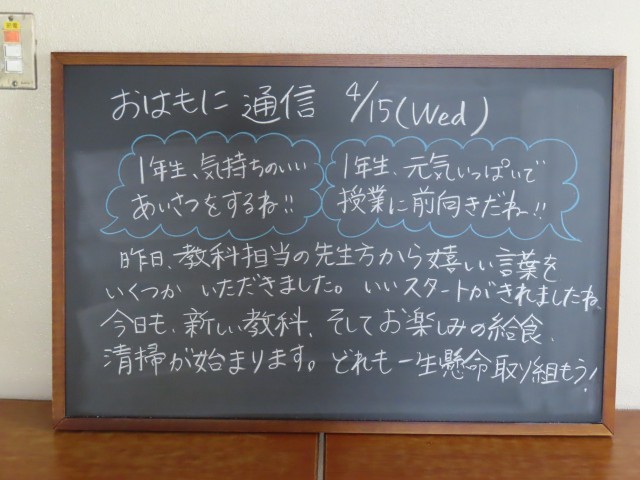 おはもに 通信 4/15(Wed)
1年生、気持ちのいい
あいさつをするね!!
1年生、元気いっぱいで
授業に前向きだね〜!!
昨日、教科担当の先生方から嬉しい言葉を
いくつか いただきました。いいスタートがきれましたね
今日も、新しい教科、そしてお楽しみの給食、
清掃が始まります。どれも一生懸命取り組もう!